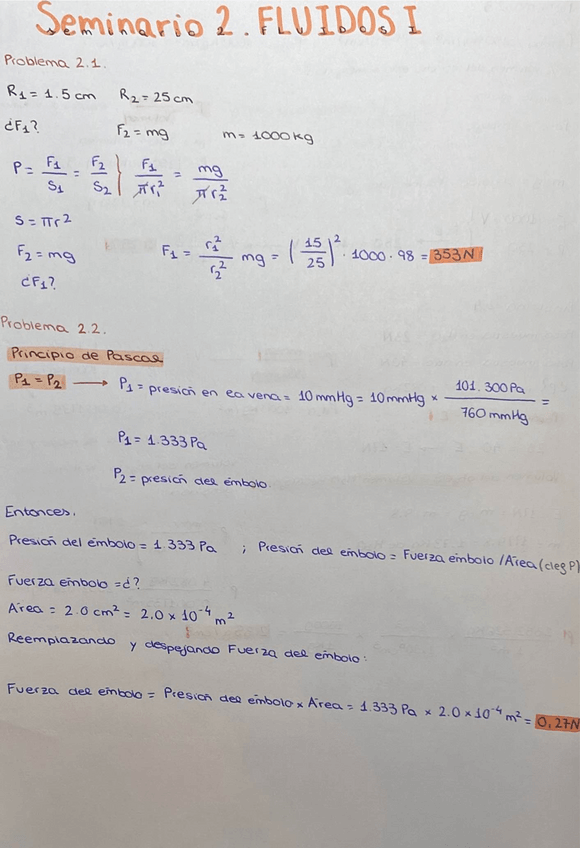 Seminario 2. FLUIDOS I
Problema 2.1.
R1 = 1.5 cm R2 = 25 cm
¿F1? F2 = mg m = 1000 kg
P = F1/S1 = F2/S2 } F1/πr1² = mg/πr2²
S = πr²
F2 = mg F1 = r1²/r2² mg = (15/25)² · 1000 · 98 = 353 N
¿F1?
Problema 2.2.
Principio de Pascal
P1 = P2 → P1 = presión en la vena = 10 mmHg = 10 mmHg × 101.300 Pa/760 mmHg =
P1 = 1.333 Pa
P2 = presión del émbolo.
Entonces,
Presión del émbolo = 1.333 Pa ; Presión del émbolo = Fuerza émbolo / Área (deg P)
Fuerza émbolo = ¿?
Área = 2.0 cm² = 2,0 × 10⁻⁴ m²
Reemplazando y despejando Fuerza del émbolo:
Fuerza del émbolo = Presión del émbolo × Área = 1.333 Pa × 2.0 × 10⁻⁴ m² = 0,27N